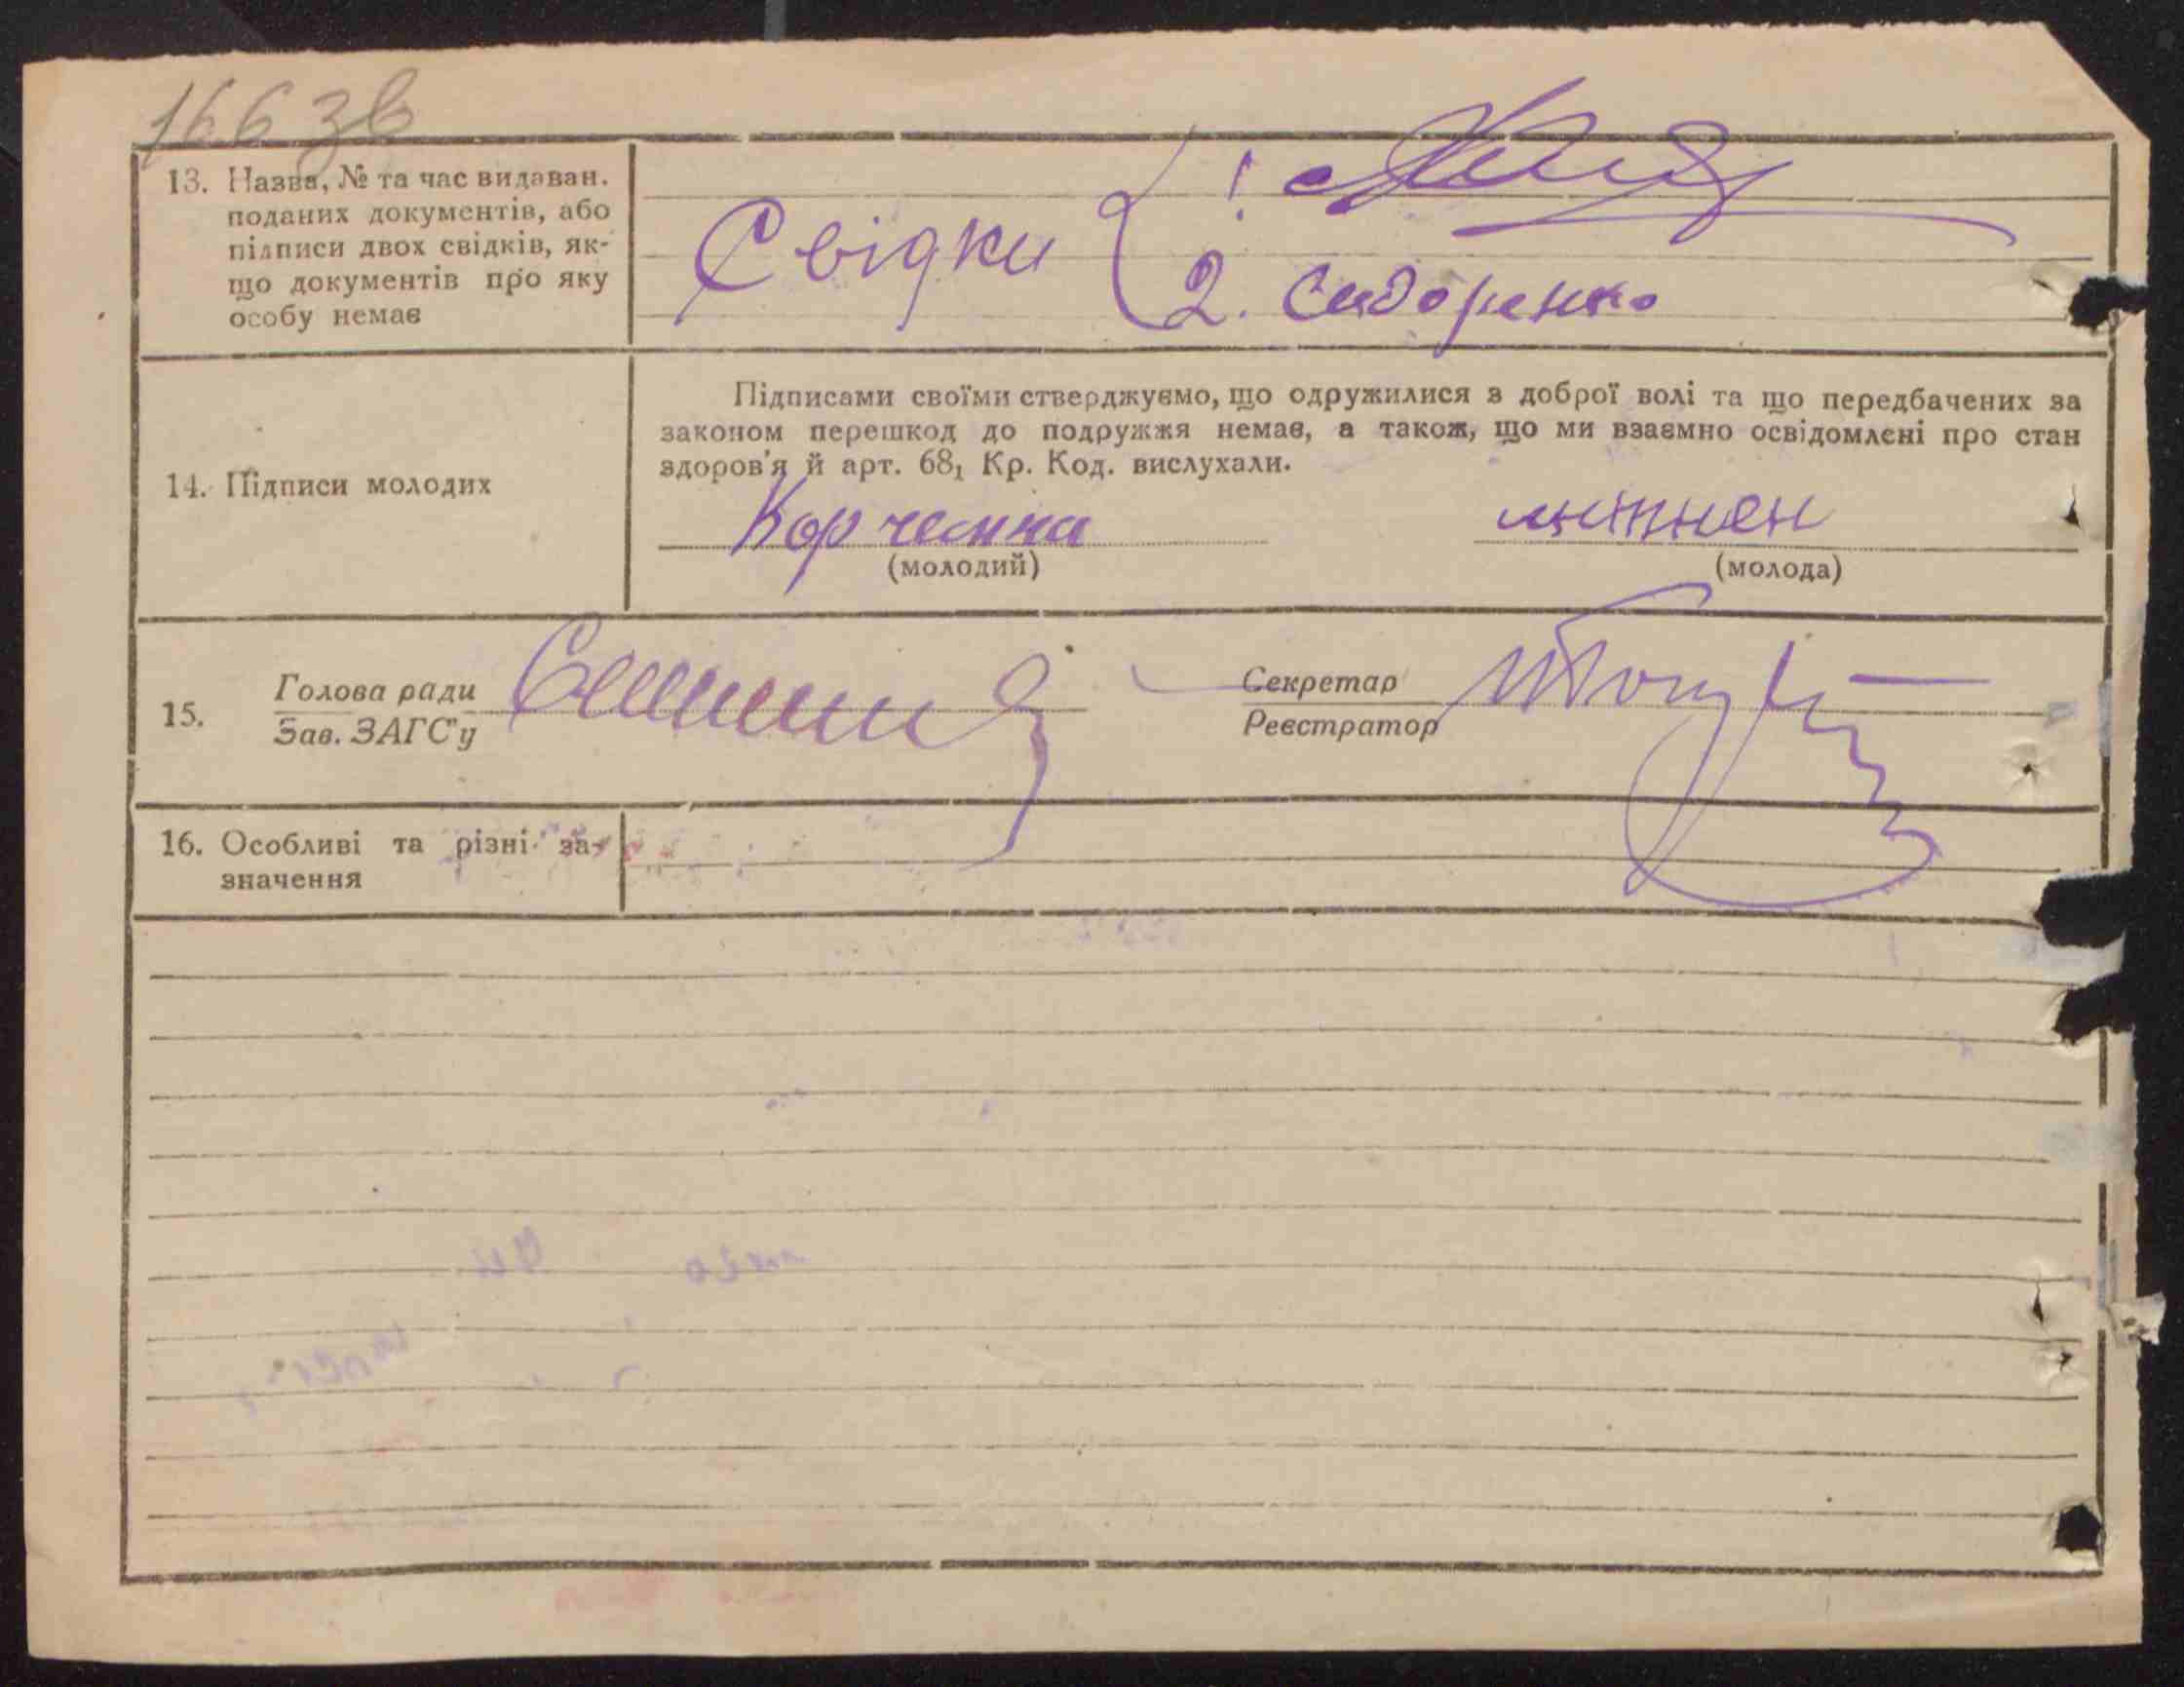 166 зв
13. Назва, № та час видаван.
поданих документів, або
підписи двох свідків, як-
що документів про яку
особу немає
Свідки
1
2. Сидоренко
14. Підписи молодих
Підписами своїми стверджуємо, що одружилися з доброї волі та що передбачених за
законом перешкод до подружжя немає, а також, що ми взаємно освідомлені про стан
здоров'я й арт. 68₁ Кр. Код. вислухали.
(молодий)
(молода)
15.
Голова ради
Зав. ЗАГС'у
Секретар
Реєстратор
16. Особливі та різні за-
значення